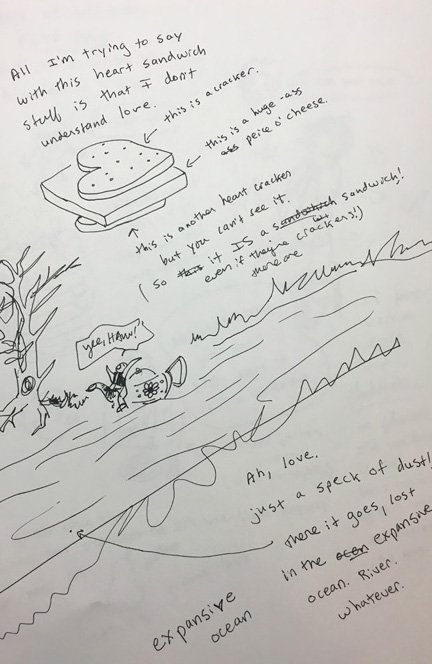 All I'm trying to say
with this heart sandwich
stuff is that I don't
understand love.
this is a cracker.
this is a huge-ass
ass peice o' cheese.
this is another heart cracker
but you can't see it.
(so this it IS a sandwhich sandwich!
even if they're crackers!)
there are
yee, Haw!
Ah, love.
just a speck of dust!
there it goes, lost
in the ocen expansive
ocean. River.
whatever.
expansive
ocean